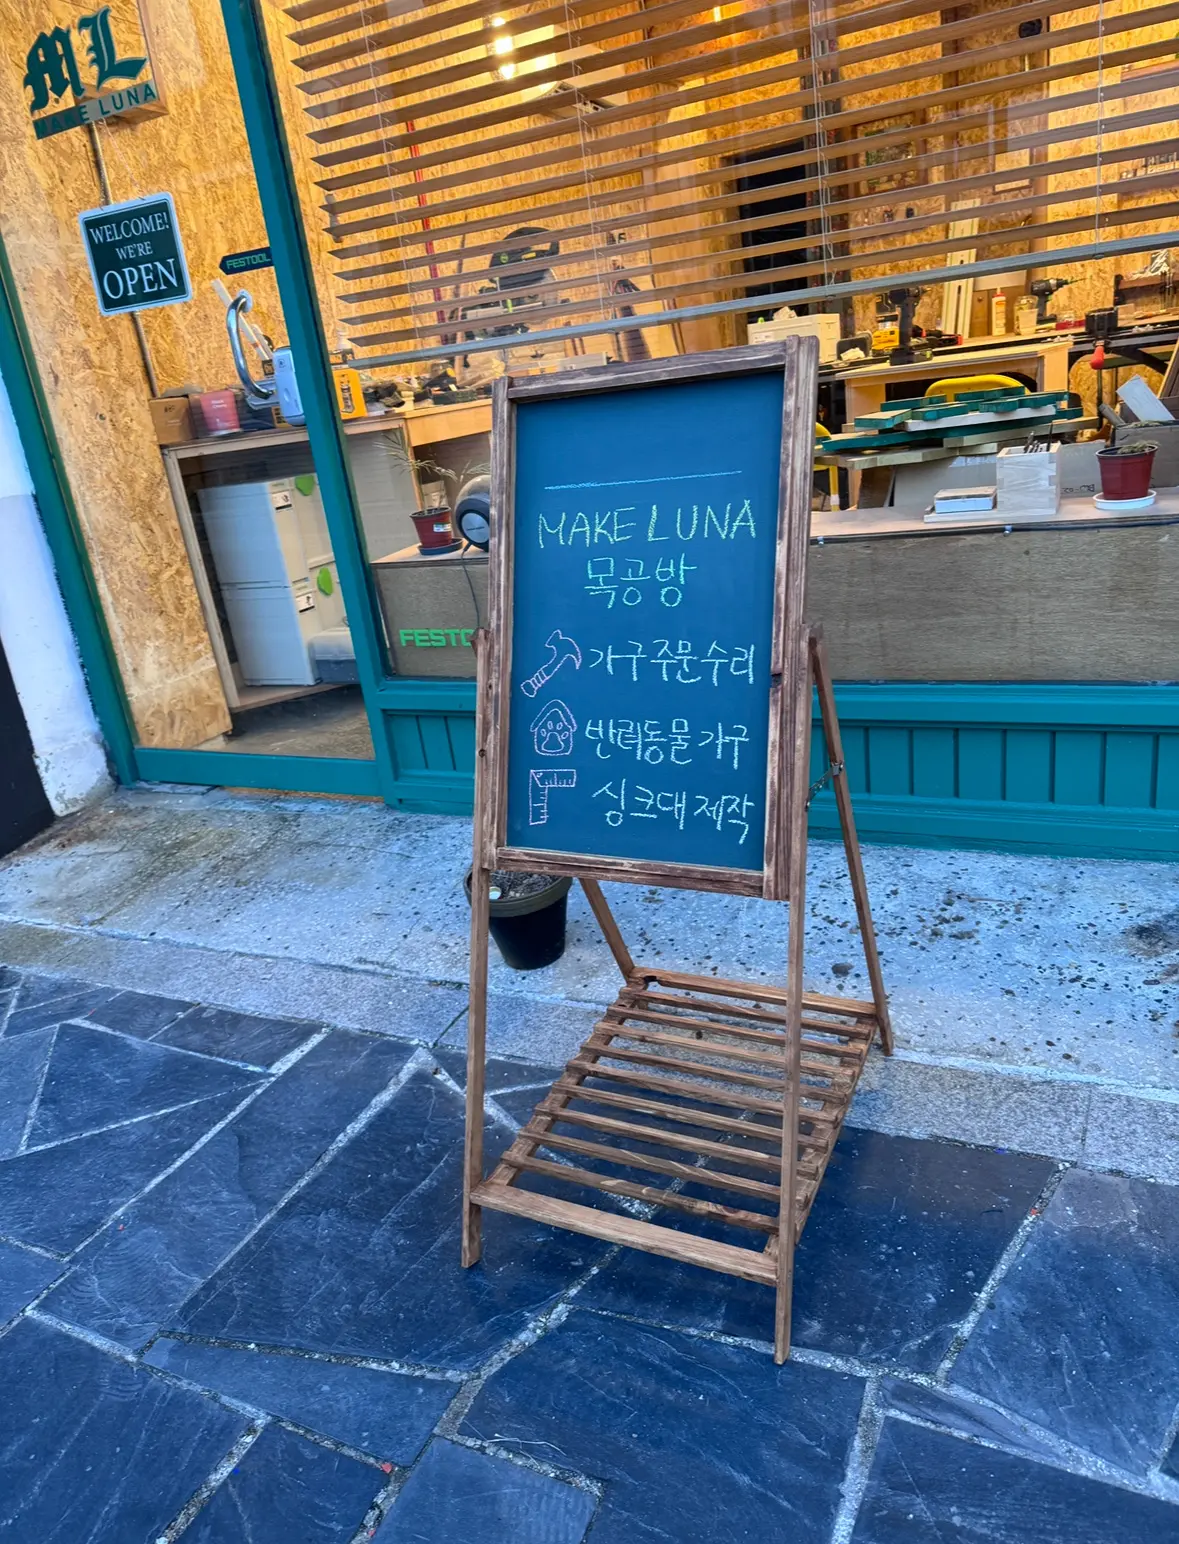 ML
MAKE LUNA
WELCOME!
WE'RE
OPEN
FESTOOL
MAKE LUNA
목공방
가구 주문 수리
반려동물 가구
싱크대 제작
FESTO